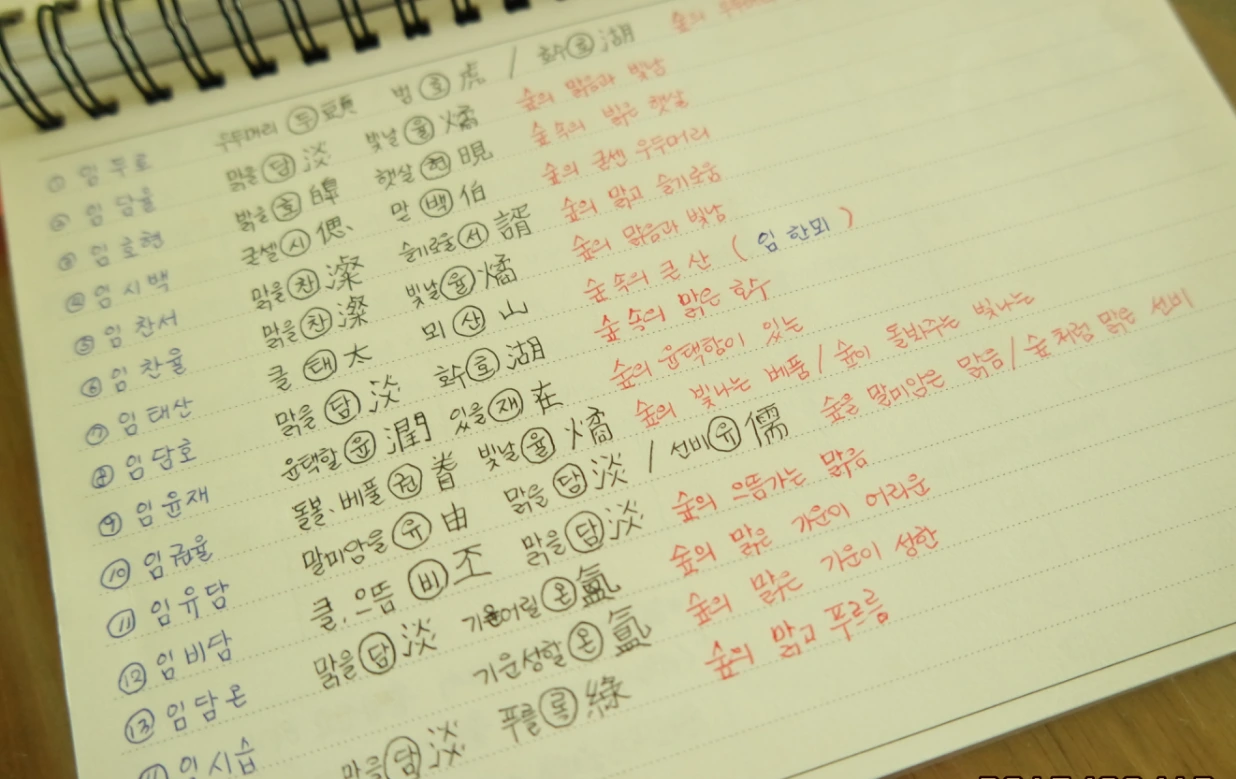 ① 임두호 우두머리 두 頭 범 호 虎 / 호수 호 湖 숲의
② 임담율 맑을 담 淡 빛날 율 燏 숲의 맑음과 빛남
③ 임호현 밝을 호 皞 햇살 현 晛 숲 속의 밝은 햇살
④ 임시백 굳셀 시 偲 맏 백 伯 숲의 굳센 우두머리
⑤ 임찬서 맑을 찬 澯 슬기로울 서 諝 숲의 맑고 슬기로움
⑥ 임찬율 맑을 찬 澯 빛날 율 燏 숲의 맑음과 빛남
⑦ 임태산 클 태 大 뫼 산 山 숲 속의 큰 산 ( 임한뫼 )
⑧ 임담호 맑을 담 淡 호수 호 湖 숲 속의 맑은 호수
⑨ 임윤재 윤택할 윤 潤 있을 재 在 숲의 윤택함이 있는
⑩ 임권율 돌볼, 베풀 권 眷 빛날 율 燏 숲의 빛나는 베풂 / 숲이 돌봐주는 빛나는
⑪ 임유담 말미암을 유 由 맑을 담 淡 / 선비 유 儒 숲을 말미암은 맑음 / 숲처럼 맑은 선비
⑫ 임비담 클, 으뜸 비 丕 맑을 담 淡 숲의 으뜸가는 맑음
⑬ 임담온 맑을 담 淡 기운어릴 온 氳 숲의 맑은 기운이 어리운
기운성할 온 氳 숲의 맑은 기운이 성한
임시습 맑을 담 淡 푸를 록 綠 숲의 맑고 푸르름